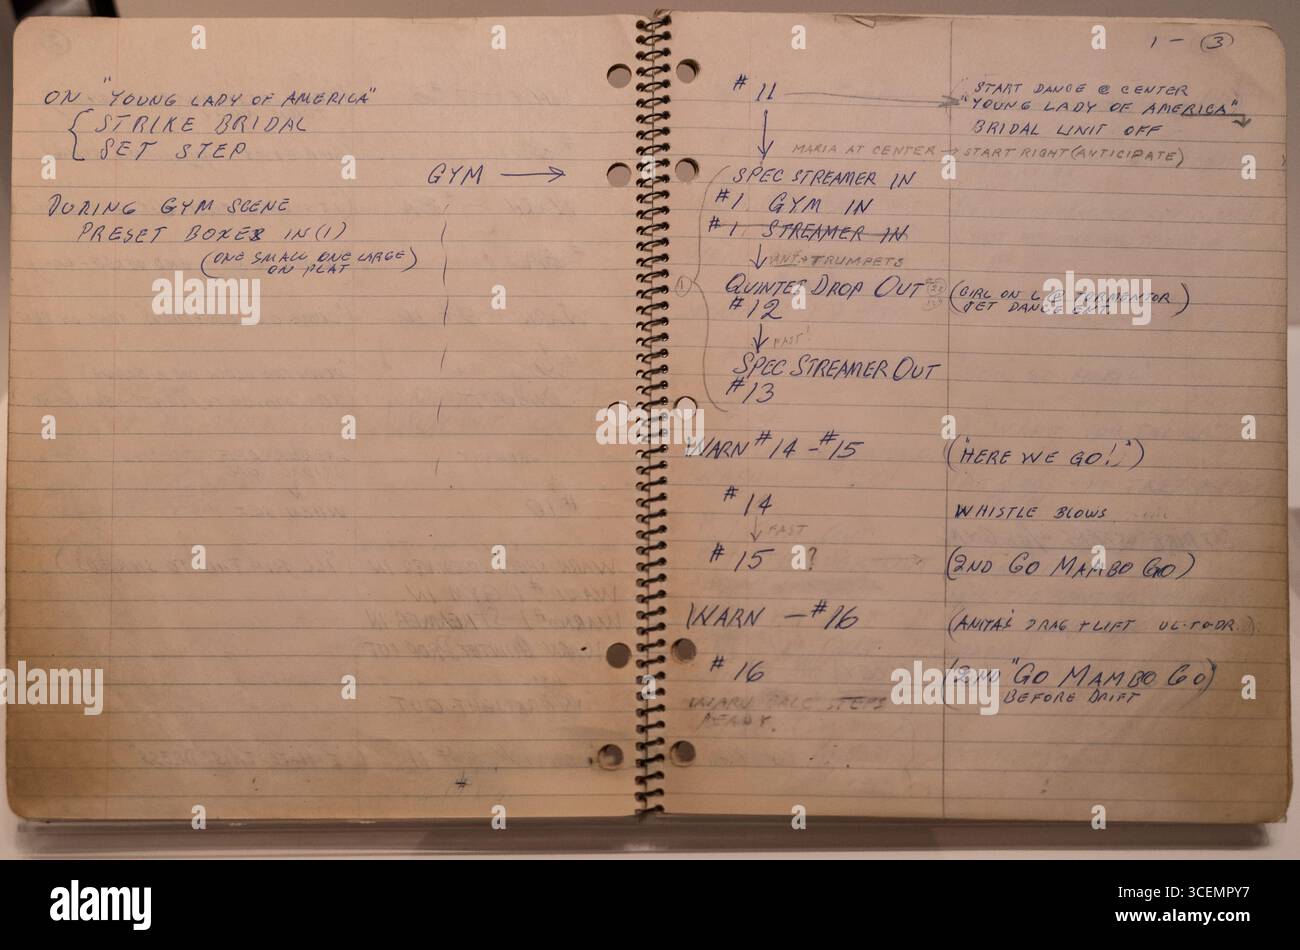 ON "YOUNG LADY OF AMERICA"
STRIKE BRIDAL
SET STEP
GYM →
DURING GYM SCENE
PRESET BOXES IN (1)
(ONE SMALL ONE LARGE)
ON PLAT
#
1 - 3
#11
START DANCE @ CENTER
"YOUNG LADY OF AMERICA"
BRIDAL UNIT OFF
MARIA AT CENTER → START RIGHT (ANTICIPATE)
SPEC STREAMER IN
#1 GYM IN
#1 STREAMER IN
TRUMPETS
1
QUINTET DROP OUT (GIRL ON L @ TORMENTOR
#12
JET DANCE
FAST!
SPEC STREAMER OUT
#13
WARN #14 - #15 ("HERE WE GO!")
#14 WHISTLE BLOWS
FAST
#15 ? (2ND GO MAMBO GO)
WARN - #16 (ANITA'S DRAG + LIFT UL-TO-DR)
#16 (2ND "GO MAMBO GO)
BEFORE DRIFT
WARN BALC STEPS
READY.
alamy
Image ID: 3CEMPY7
www.alamy.com